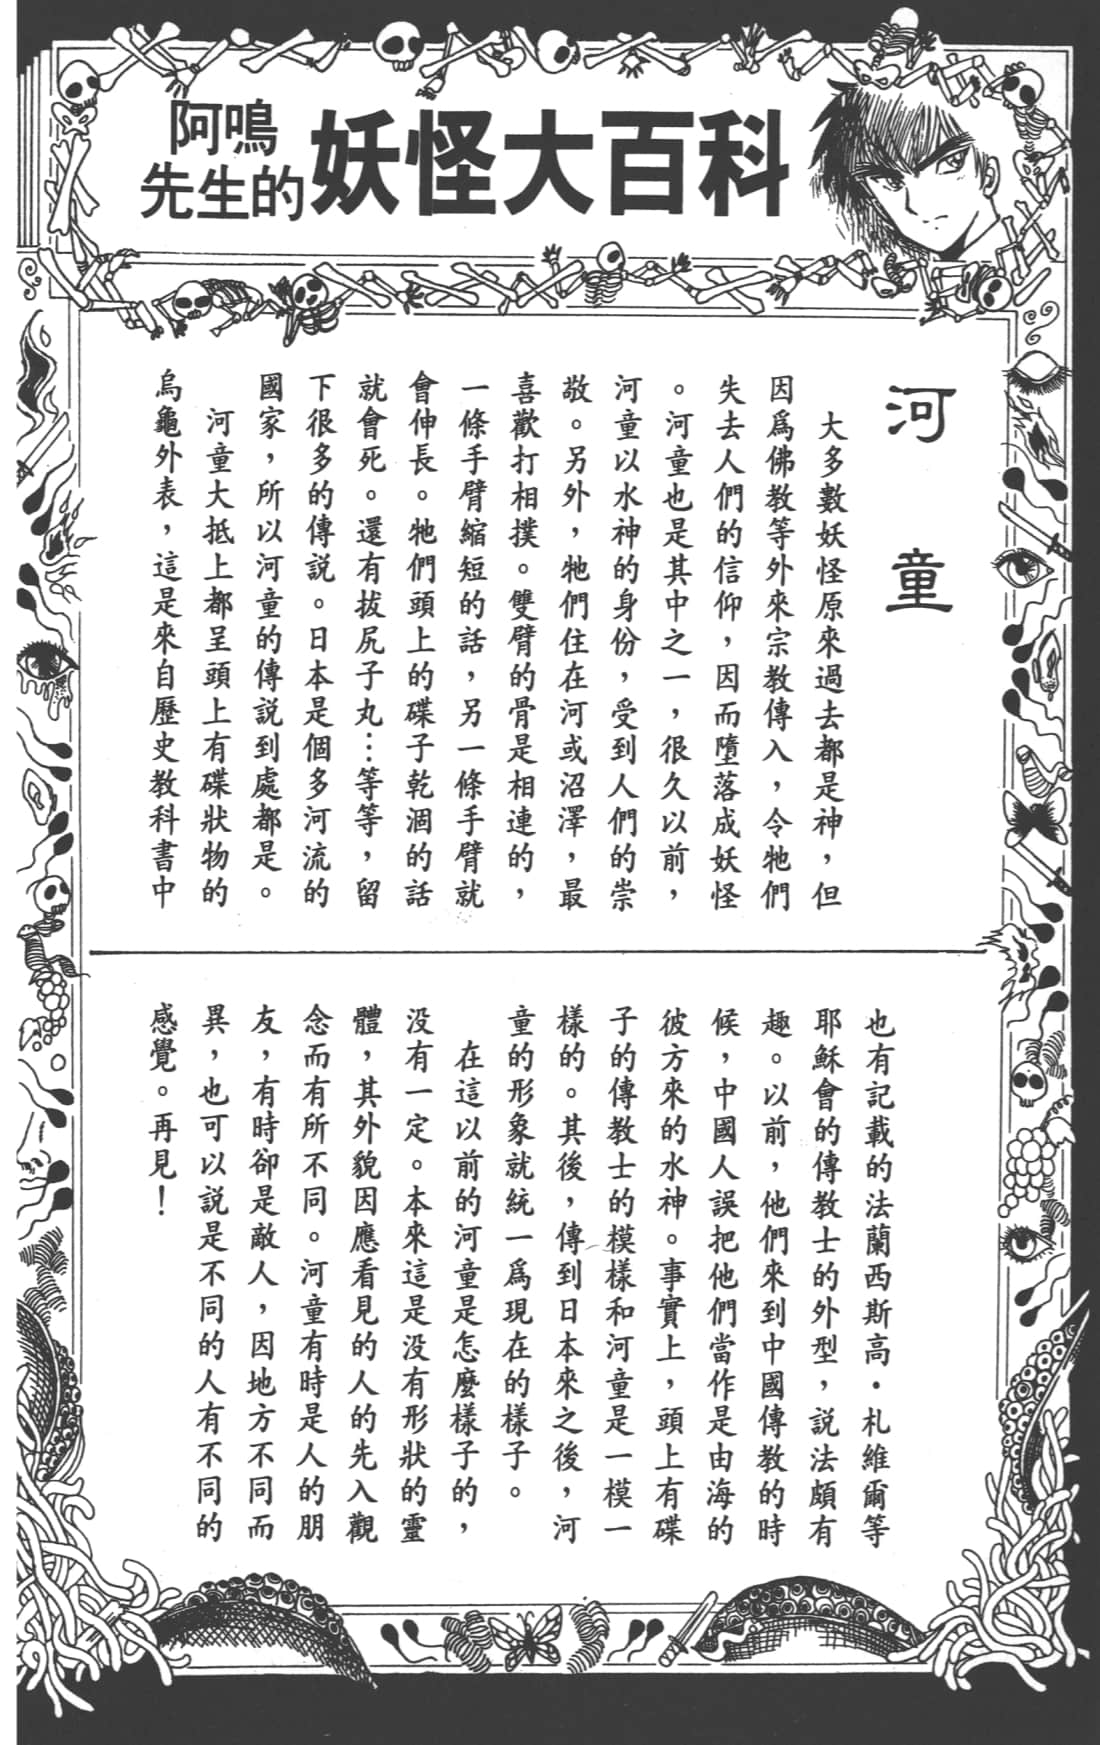 阿鳴
先生的
妖怪大百科
河童
大多數妖怪原來過去都是神，但
因爲佛教等外來宗教傳入，令牠們
失去人們的信仰，因而墮落成妖怪
。河童也是其中之一，很久以前，
河童以水神的身份，受到人們的崇
敬。另外，牠們住在河或沼澤，最
喜歡打相撲。雙臂的骨是相連的，
一條手臂縮短的話，另一條手臂就
會伸長。牠們頭上的碟子乾涸的話
就會死。還有拔尻子丸…等等，留
下很多的傳説。日本是個多河流的
國家，所以河童的傳説到處都是。
河童大抵上都呈頭上有碟狀物的
烏龜外表，這是來自歷史教科書中
也有記載的法蘭西斯高・札維爾等
耶穌會的傳教士的外型，説法頗有
趣。以前，他們來到中國傳教的時
候，中國人誤把他們當作是由海的
彼方來的水神。事實上，頭上有碟
子的傳教士的模樣和河童是一模一
樣的。其後，傳到日本來之後，河
童的形象就統一爲現在的樣子。
在這以前的河童是怎麼樣子的，
没有一定。本來這是没有形狀的靈
體，其外貌因應看見的人的先入觀
念而有所不同。河童有時是人的朋
友，有時卻是敵人，因地方不同而
異，也可以説是不同的人有不同的
感覺。再見！